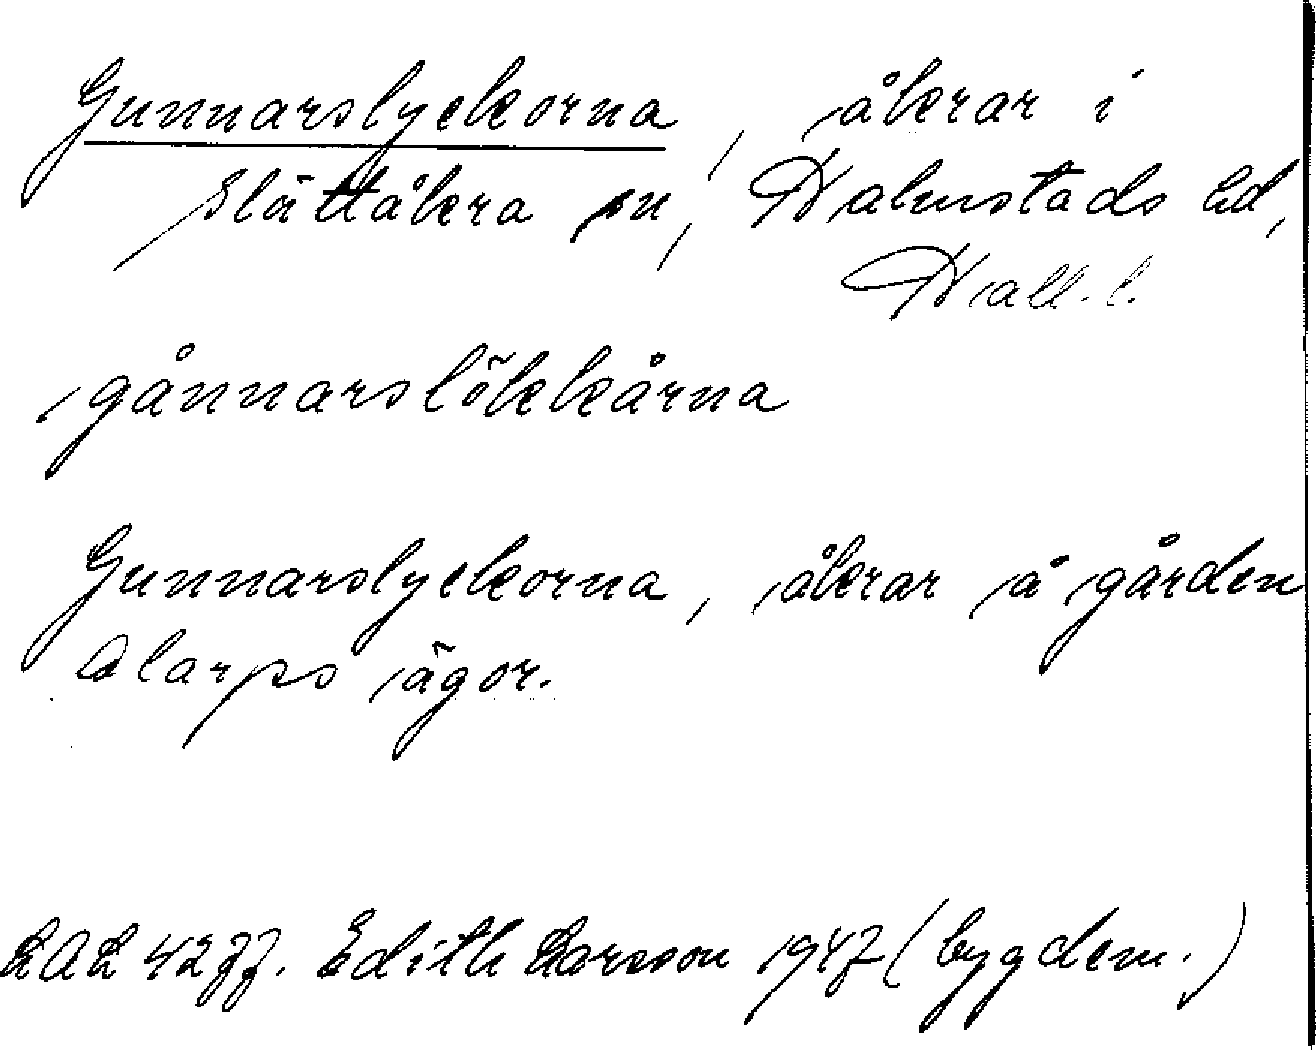 Gunnarslyckorna, åkrar i
Slättåkra sn, Halmstads hd,
Hall. l.
gånnarslökkårna
Gunnarslyckorna, åkrar å gården
Alarps ägor.
LAL 4277. Edith Larsson 1947 (bygdem.)